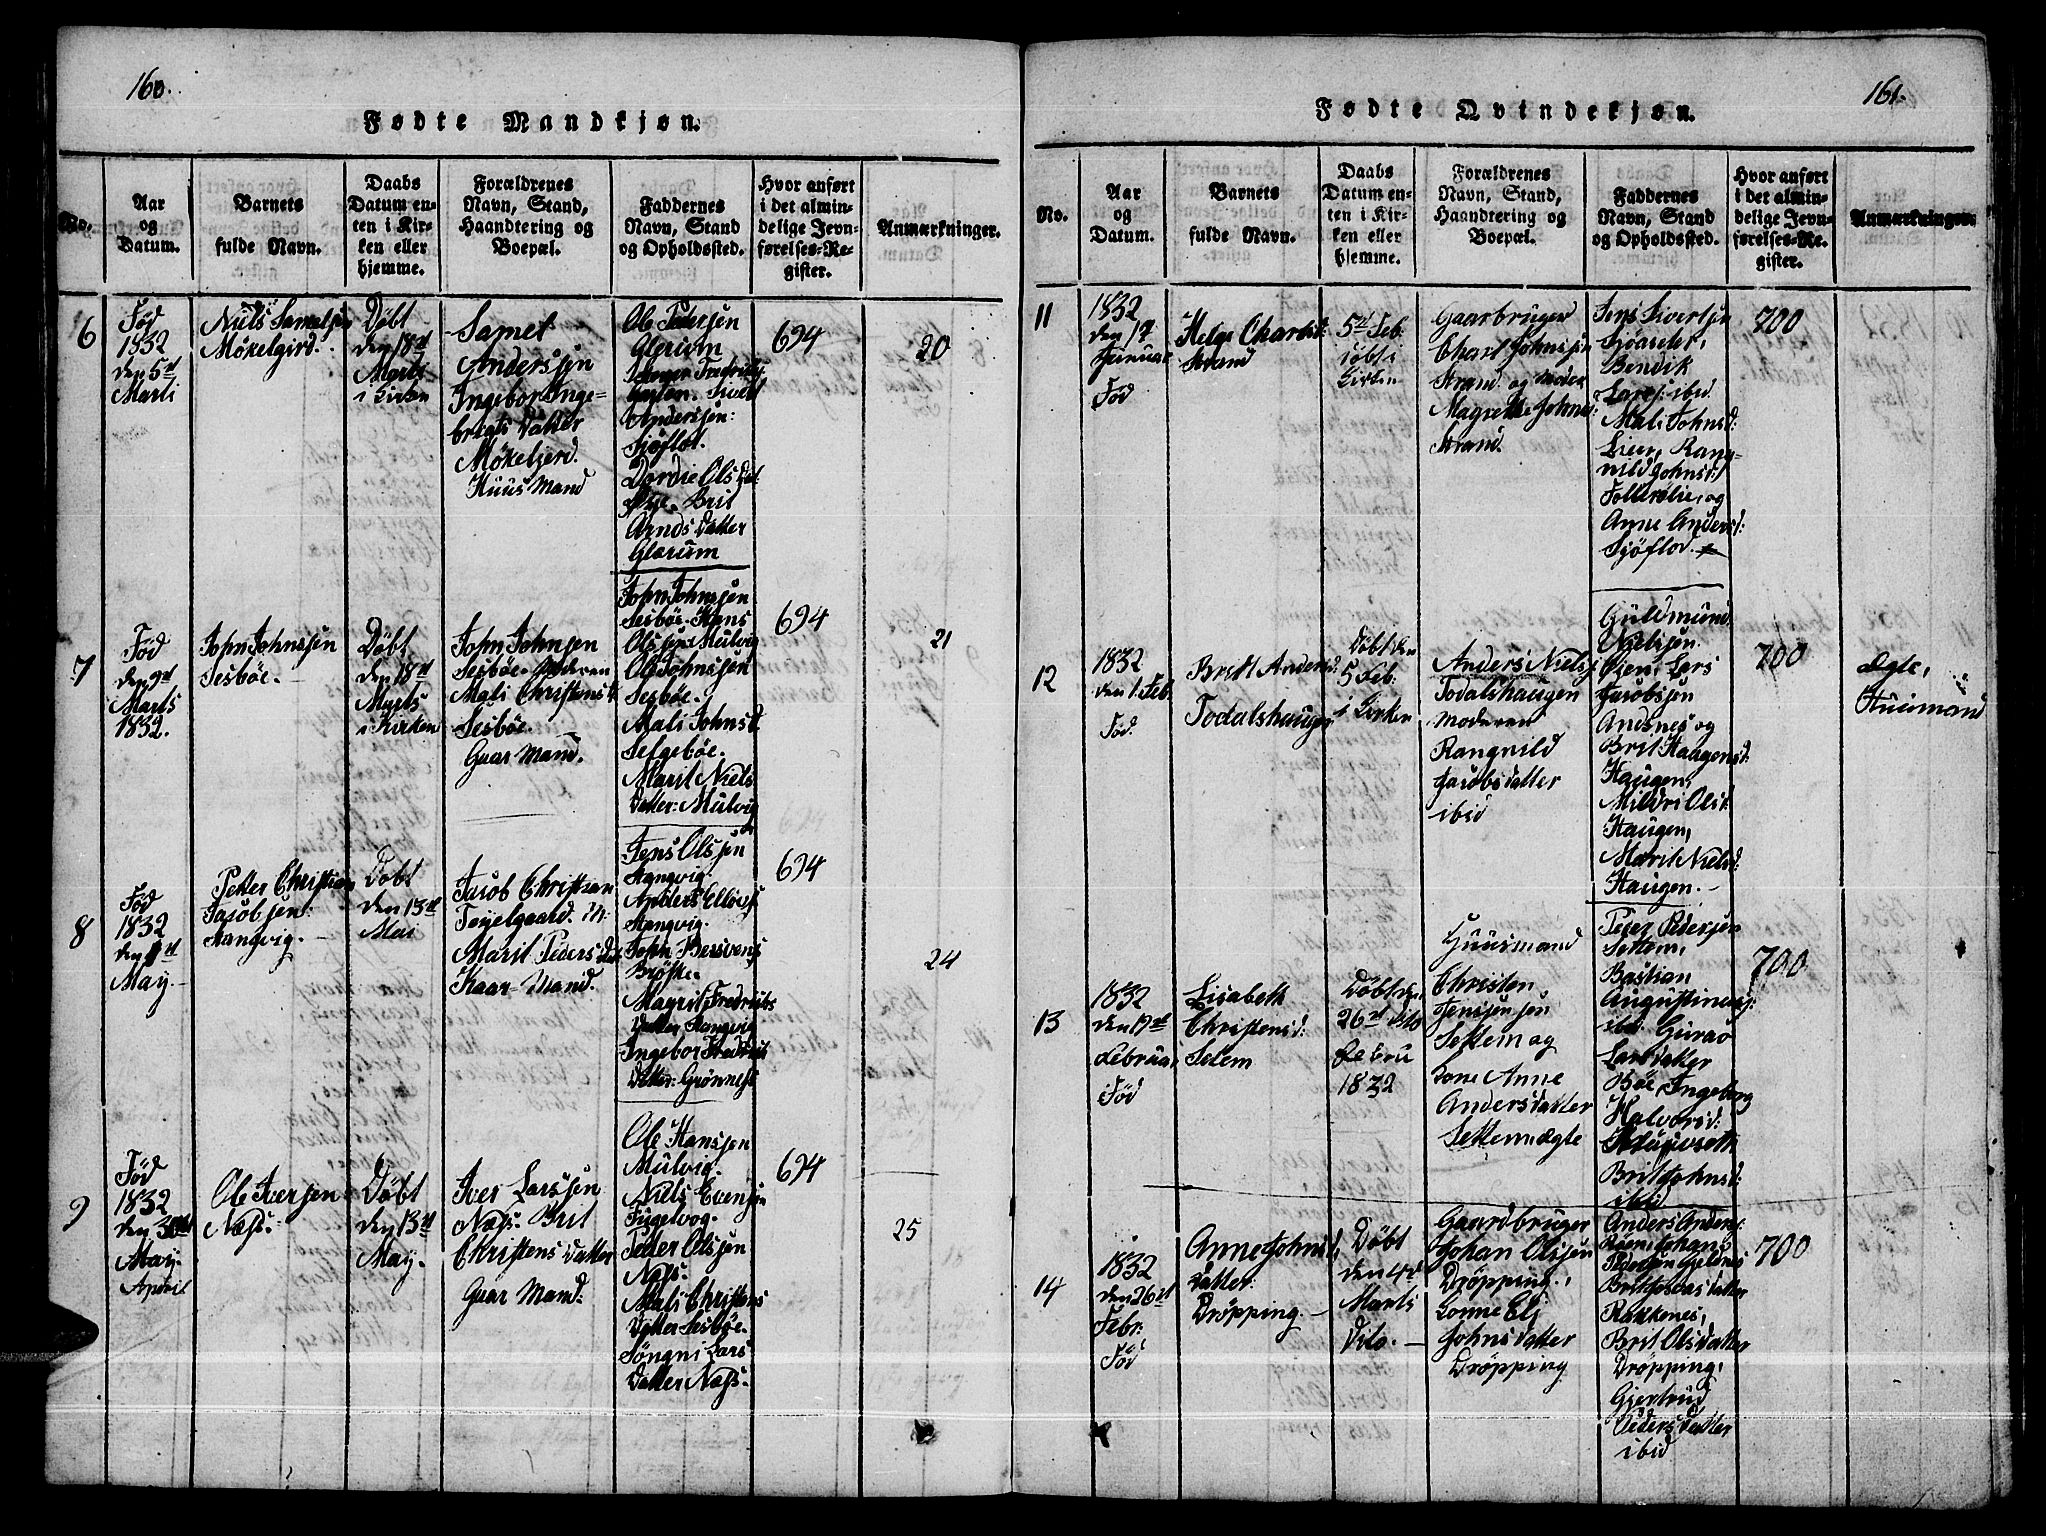 160.
Fødte Mandkjøn.
No.
Aar
og
Datum.
Barnets
fulde Navn.
Daabs
Datum en-
ten i Kir-
ken eller
hjemme.
Forældrenes
Navn, Stand,
Haandtering og
Boepæl.
Faddernes
Navn, Stand
og Opholdssted.
Hvor anført
i det almin-
delige Jevn-
førelses-Re-
gister.
Anmærkninger.
6
Fød
1832
den 5te
Marti
Niels Samelsen
Møkelgird.
Døbt
den 18de
Marti
i Kirken
Samel
Anderssen
Ingebor Inge-
brigts Datter
Møkeljerd.
Huus Mand
Ole Pedersen
Glærum
Andersen:
Sjøflot.
Dordie Ols Dat
Øye. Brit
Arnds Datter
Glærum
694
20
7
Fød
den 9de
Marts
1832.
John Johnssen
Sesbøe.
Døbt
den 18de
Marts
i Kirken
John Johnsen
Sesbøe. Moderen
Mali Christensd
Sesbøe.
Gaar Mand.
John Johnssen
Sesbøe. Hans
Olssen Mulvig
Ole Johnssen
Sesbøe.
Mali Johnsd
Selgebøe.
Marit Niels
Datter: Mulvig
694
21
8
Fød
1832
den 1te
May.
Petter Christian
Jacobsen:
Hangvig.
Døbt
den 13de
Mai
Jacob Christian
Marit Peders Dat
Kaar Mand.
Jens Olssen
Hangvig.
Anders Ellevs
Hangvig.
John Bersvens
Brøske.
Magrit Fredriks
Datter Hangvig
Ingebor Fredriks
Datter: Grønnes
694
24
9
Fød
1832
den 30te
May.
April
Ole Iversen
Næss.
Døbt
den 13de
May.
Iver Larssen
Næss. Brit
Christens Datter
Gaar Mand.
Ole Hanssen
Mulvig.
Niels Evensen
Fugelvog.
Peder Olssen
Næss.
Mali Christens
Datter Sesbøe.
Søngni Lars
Datter Næss.
694
25
161.
Fødte Qvindekjøn.
No.
Aar
og
Datum.
Barnets
fulde Navn.
Daabs
Datum en-
ten i Kir-
ken eller
hjemme.
Forældrenes
Navn, Stand,
Haandtering og
Boepæl.
Faddernes
Navn, Stand
og Opholdsted.
Hvor anført
i det almin-
delige Jevn-
førelses-Re-
gister.
Anmærkninger.
11
1832
den 17
Januar
Fød
Helge Charlsd:
Strand
5te Feb.
døbt i
Kirken
Gaarbruger
Charl Johnsen
Strand og Moder
Magrethe Johns:
Strand.
Jens Sivertsen
Sjøaseter,
Bendik
Lars: ibid.
Mali Johnsd:
Lien, Rang-
nild Johnsd:
Follesølie, og
Anne Andersd:
Sjøflod.
700
12
1832
den 1. Feb.
Fød
Bredt Andersd.
Todalshaugen
Døbt den
5 Feb.
i Kirken
Anders Niels
Todalshaugen
Moderen
Rangnild
Jacobsdatter
ibid
Guldmund
Nielsen.
Øjen, Lars
Jacobsen
Andsnes og
Brit Haagensd:
Haugen,
Mildri Olsd:
Haugen,
Marit Nielsd:
Haugen.
700
Ægte,
Huusmand
13
1832
den 17de
Februar
Fød
Lisabeth
Christensd:
Setem
Døbt den
26de Dito
Febru
1832
Huusmand
Christen
Jenssensen
Settem og
Kone Anne
Andersdatter
Settem ægte
Peter Pedersen
Settem,
Bastian
Augustineus:
ibd. Guraö
Larsdatter
Bøe, Ingeborg
Halvorsd:
Brit Johnsd:
ibid
700
14
1832
den 26de
Febr:
Fød
Anne Johnsd,
Datter:
Drøpping.
Døbt
den 4de
Marts
Dito.
Gaardbruger
Johan Olssen
Drøpping,
Konne Eli
Johnsdatter
Drøpping
Anders Anders:
Røen, Johans
Pedersen Gjeldnes
Brit Joensdatter
Rakkenes,
Brit Olsdatter
Drøpping,
Gjertrud
Pedersdatter
ibid
700